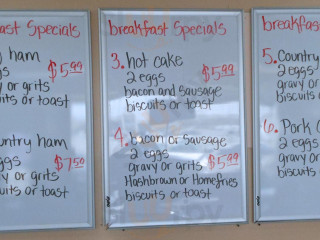 ast Specials
ham
ggs
or grits
$5.99
uits or toast
ntry ham
ggs
$7.50
y or grits
uits or toast
breakfast Specials
3. hot cake
2 eggs
$5.99
bacon and sausage
biscuits or toast
4. bacon or sausage
2 eggs
gravy or grits $5.99
Hashbrown or Homefries
biscuits or toast
breakfast
5. Country
2 eggs
gravy or
biscuits
6. Pork
2 eggs
gravy or
biscuits